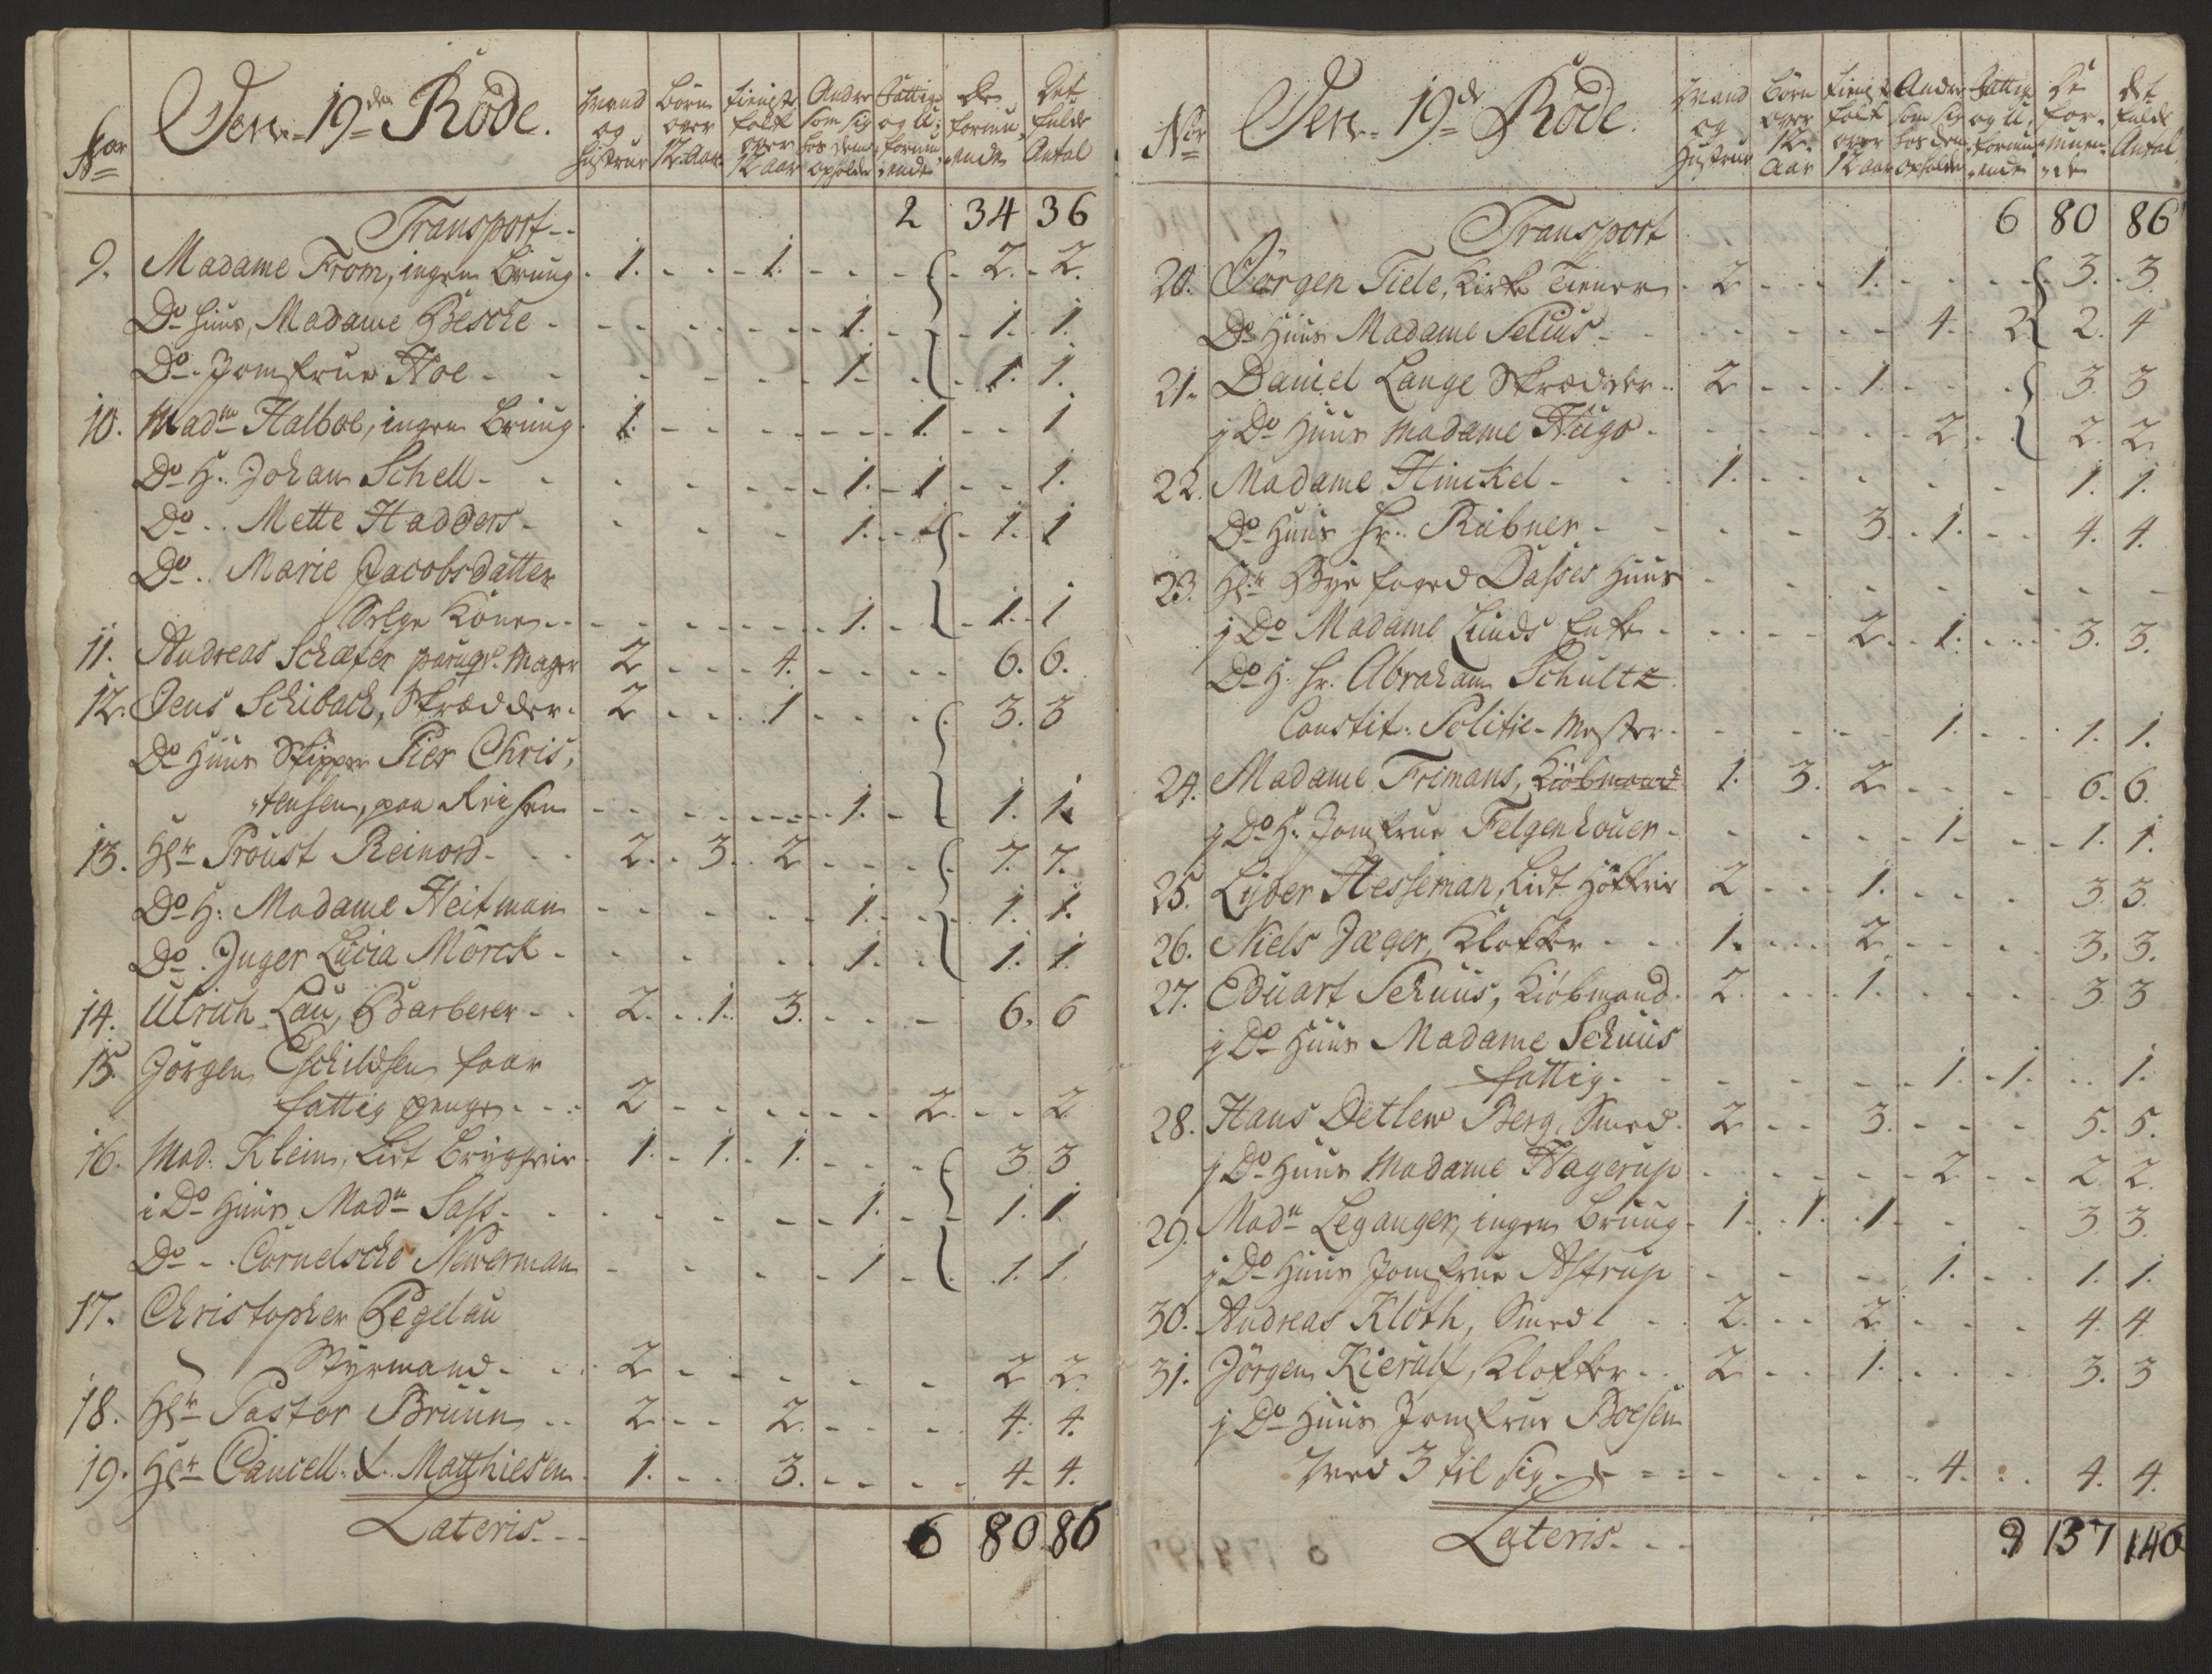 Den 19de Rode.
No
Mand og Hustrue
Börn over 12 Aar
Tieniste folk over 12 aar
Andre som sig hos dem opholder
Fattige og U: formu: ende
De formu: ende
Det fulde Antal
Transport -- 2 34 36
9. Madame From, ingen Bruug 1. 1. 2. 2.
Do Huus, Madame Besche - 1. 1. 1.
Do Jomfrue Hoe - 1. 1. 1.
10. Madme Halboe, ingen Bruug 1. 1. 1
Do H: Johan Schell - 1. 1 1.
Do .. Mette Hadders - 1. 1. 1
Do .. Marie Jacobsdatter
Selge Kone 1. 1. 1
11. Andreas Schæfer paruqv: Mager 2 4. 6. 6.
12. Jens Schiback, Skrædder. 2 1 3. 3
Do Huus Skipper Pier Chris:
tensen, paa Reisen 1. 1. 1.
13. Hr Proust Reinord - 2. 3. 2 7. 7.
Do H: Madame Heitman 1. 1. 1.
Do . Inger Lucia Mörck - 1. 1. 1.
14. Ulrich Lau, Barberer - 2. 1. 3. 6. 6
15. Jörgen Eschildsen faar
fattig penge - 2 2. 2
16. Mad: Klein, Lidt Bryggerie 1. 1. 1. 3 3
i Do Huus Madm Sass - 1. 1. 1.
Do - . Cornelsche Newerman 1 1. 1.
17. Christopher Pegelau
Styrmand - 2 2 2
18. Hr Pastor Bruun 2 2. 4. 4.
19. Hr Cancell: L. Matthiesen 1. 3. 4. 4.
Lateris -- 6 80 86
Den 19de Rode.
No
Mand og Hustrue
Börn over 12. Aar
Tienist folk over 12 aar
Andre som sig hos dem opholder
Fattig og U: formu: ende
De for: muen: de
det fulde Antal
Transport 6 80 86
20. Jörgen Tiele, Kirke Tiener 2 1. 3. 3.
Do Huus Madame Selius - 4. 2 2. 4
21. Daniel Lange Skrædder 2 1. 3 3
j Do Huus Madame Hugo - 2. 2. 2
22. Madame Hinckel - 1. 1. 1.
Do Huus Hr: Rübner - 3. 1. 4. 4.
23. Hr Bye foged Dasses Huus
j Do Madame Lunds Enke - 2. 1. 3. 3.
Do H: Hr. Abraham Schultz
Constit: Politie-Mester 1. 1. 1.
24. Madame Frimans, Kiöbmand 1. 3. 2 6. 6.
j Do H: Jomfrue Felgenhouer - 1. 1. 1.
25. Lyder Hesseman, Lidt Høkkerie 2 1. 3. 3.
26. Niels Jæger, Klokker 1. 2 3. 3.
27. Eduart Schuus, Kiöbmand 2. 1. 3 3
j Do Huus Madame Schuus
fattig - 1. 1. 1.
28. Hans Detlew Berg, Smed. 2 3. 5. 5.
j Do Huus Madame Hagerup 2 2. 2.
29. Madm Leganger, ingen Bruug 1. 1. 1. 3. 3.
j Do Huus Jomfrue Astrup 1. 1. 1.
30. Andreas Kloth, Smed 2. 2 4. 4
31. Jörgen Kierulf, Klokker 2 1. 3. 3
j Do Huus Jomfrue Boesen
Med 3 til sig - 4. 4. 4.
Lateris -- 9 137 146